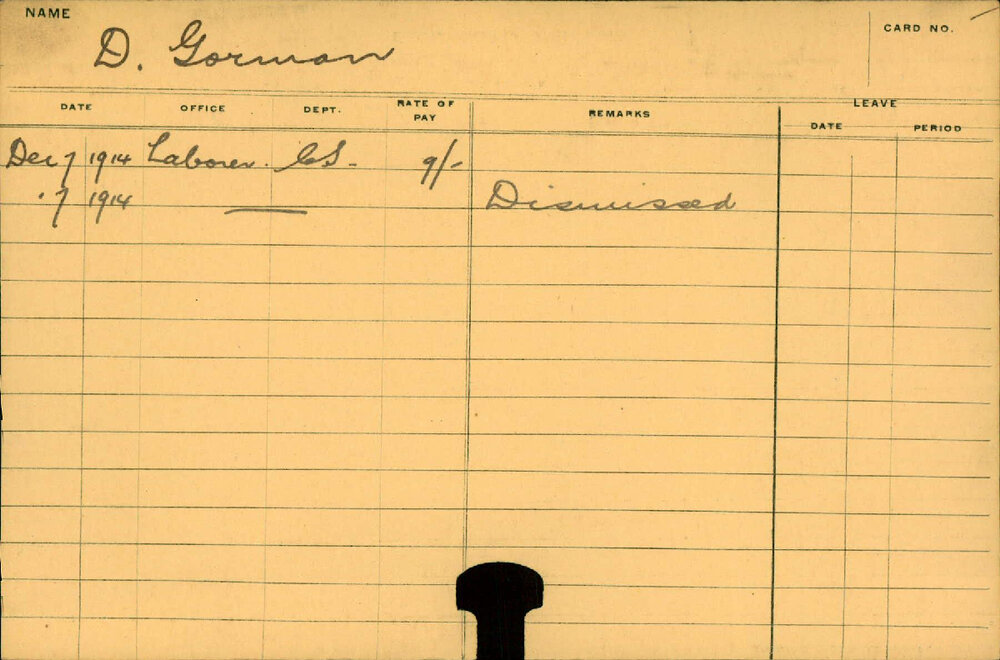 NAME
D. Gorman
CARD NO.
DATE OFFICE DEPT. RATE OF PAY REMARKS LEAVE
DATE PERIOD
Dec 7 1914 Laborer. CS- 9/-
" 7 1914 — Dismissed